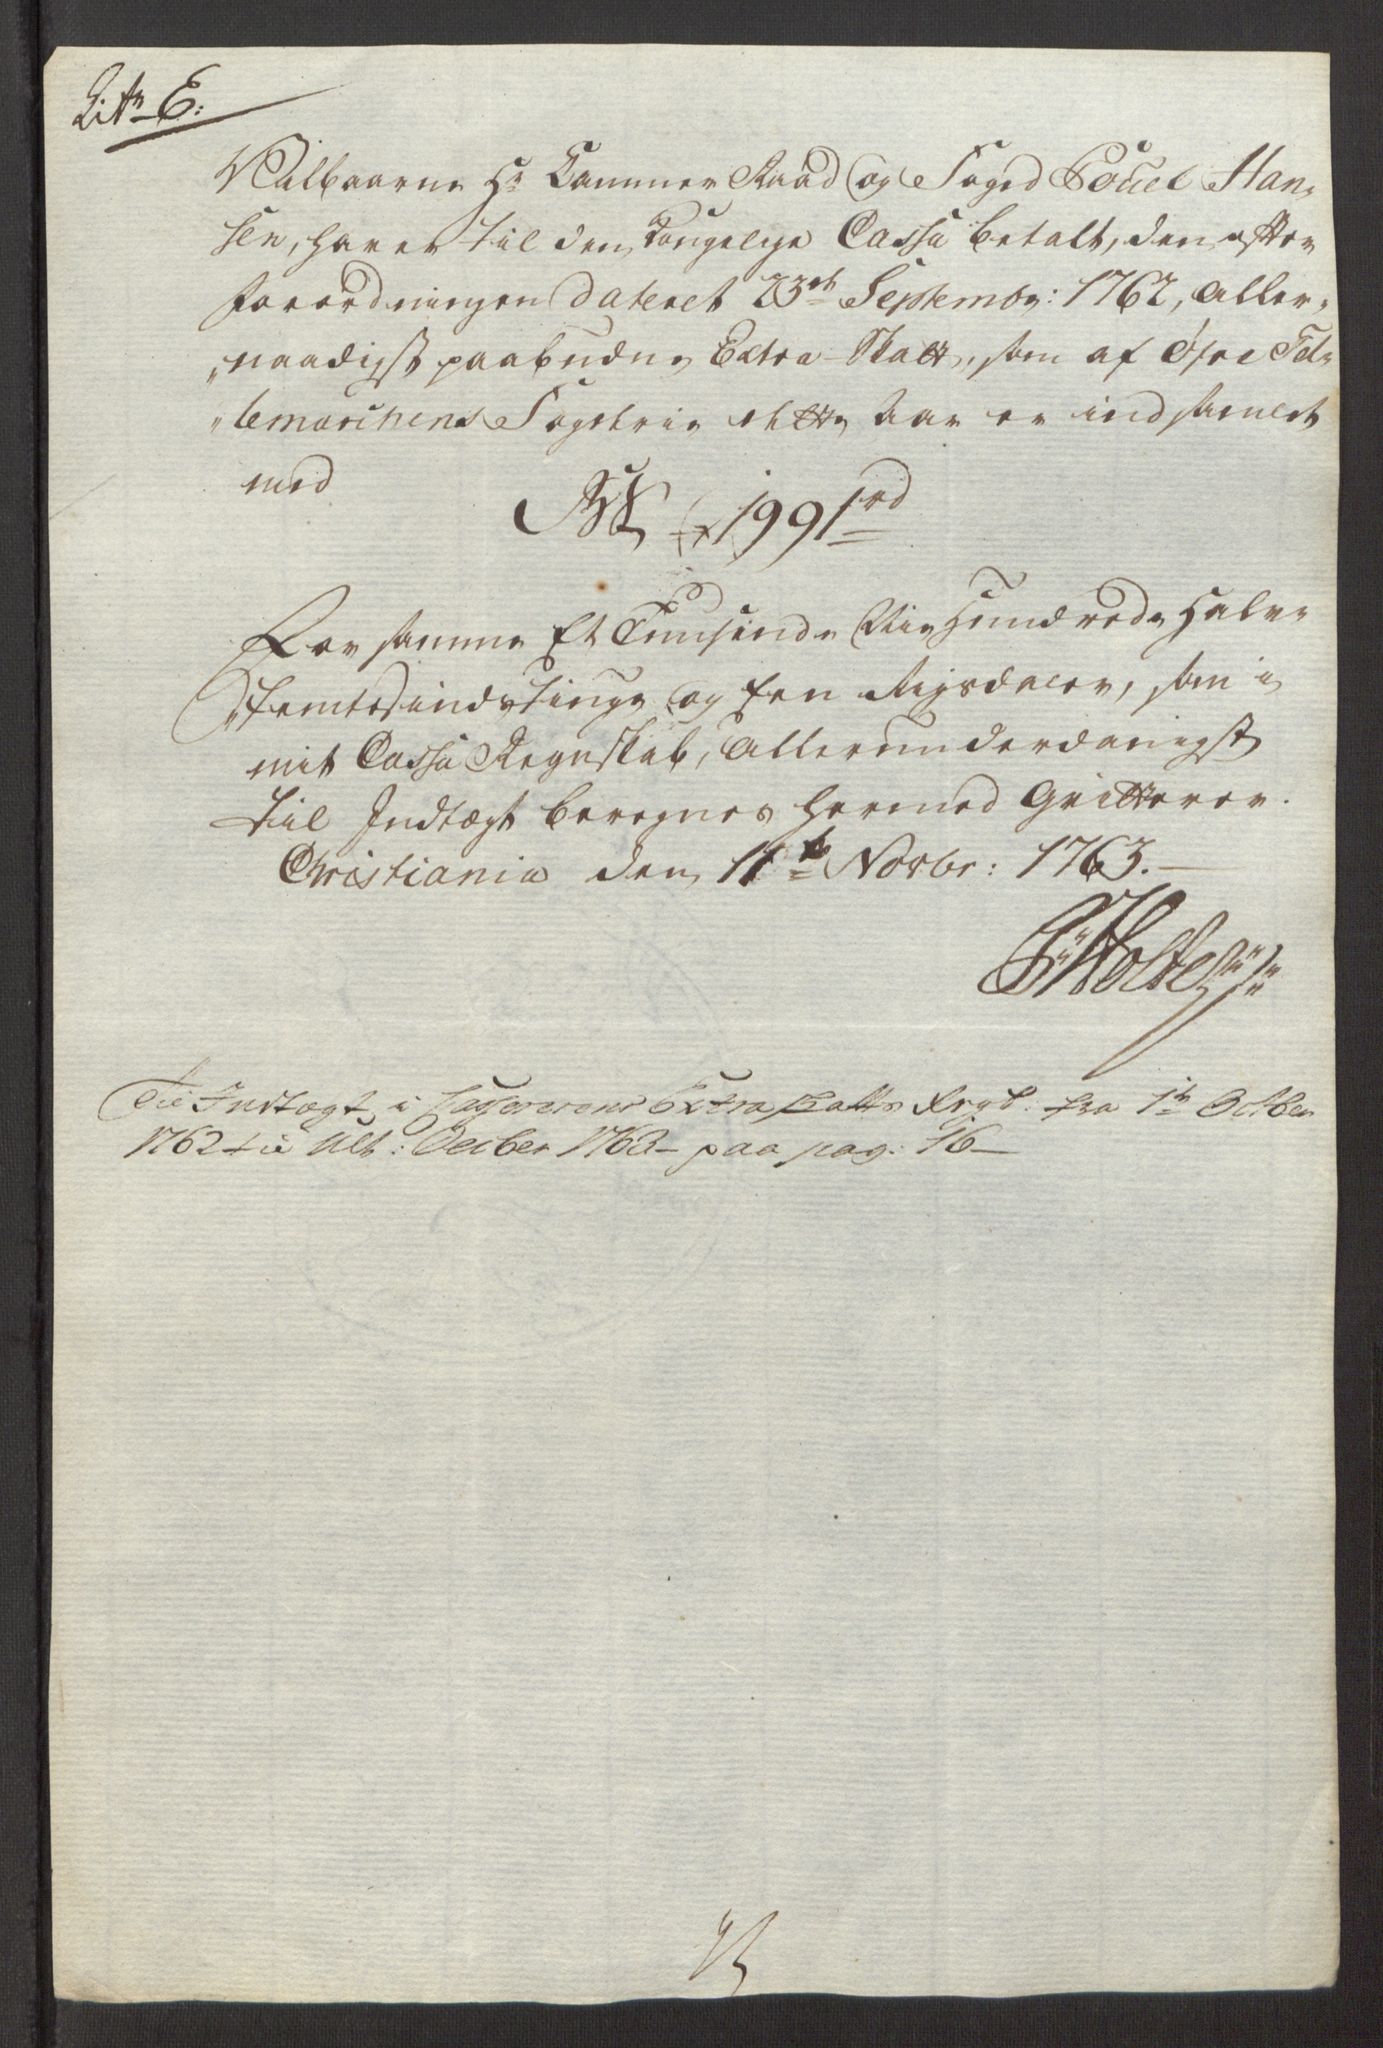 Litr E:
Vælbaarne Hr Cammer Raad og Foged Povel Han,
sen, haver til den Kongelige Cassa betalt, den efter
Forordningen dateret 23de Septembr: 1762, Aller,
naadigst paabudne Extra-Skatt, som af Øfre Tel,
lemarchens Fogderie dette Aar er indsamlet
med
1991rd
For samme Et Tusinde Nie Hundrede Halv,
femtesindstiuge og Een Rigsdaler, som i
mit Cassa Regnskab, Allerunderdanigst
til Indtægt beregnes hermed Qvitterer.
Christiania den 11te Novbr: 1763.
Holte
Til Indtægt i Casserens Extra Skatts Regsk: fra 1te Octber
1762 til Ult: Decber 1763 - paa pag: 16 -